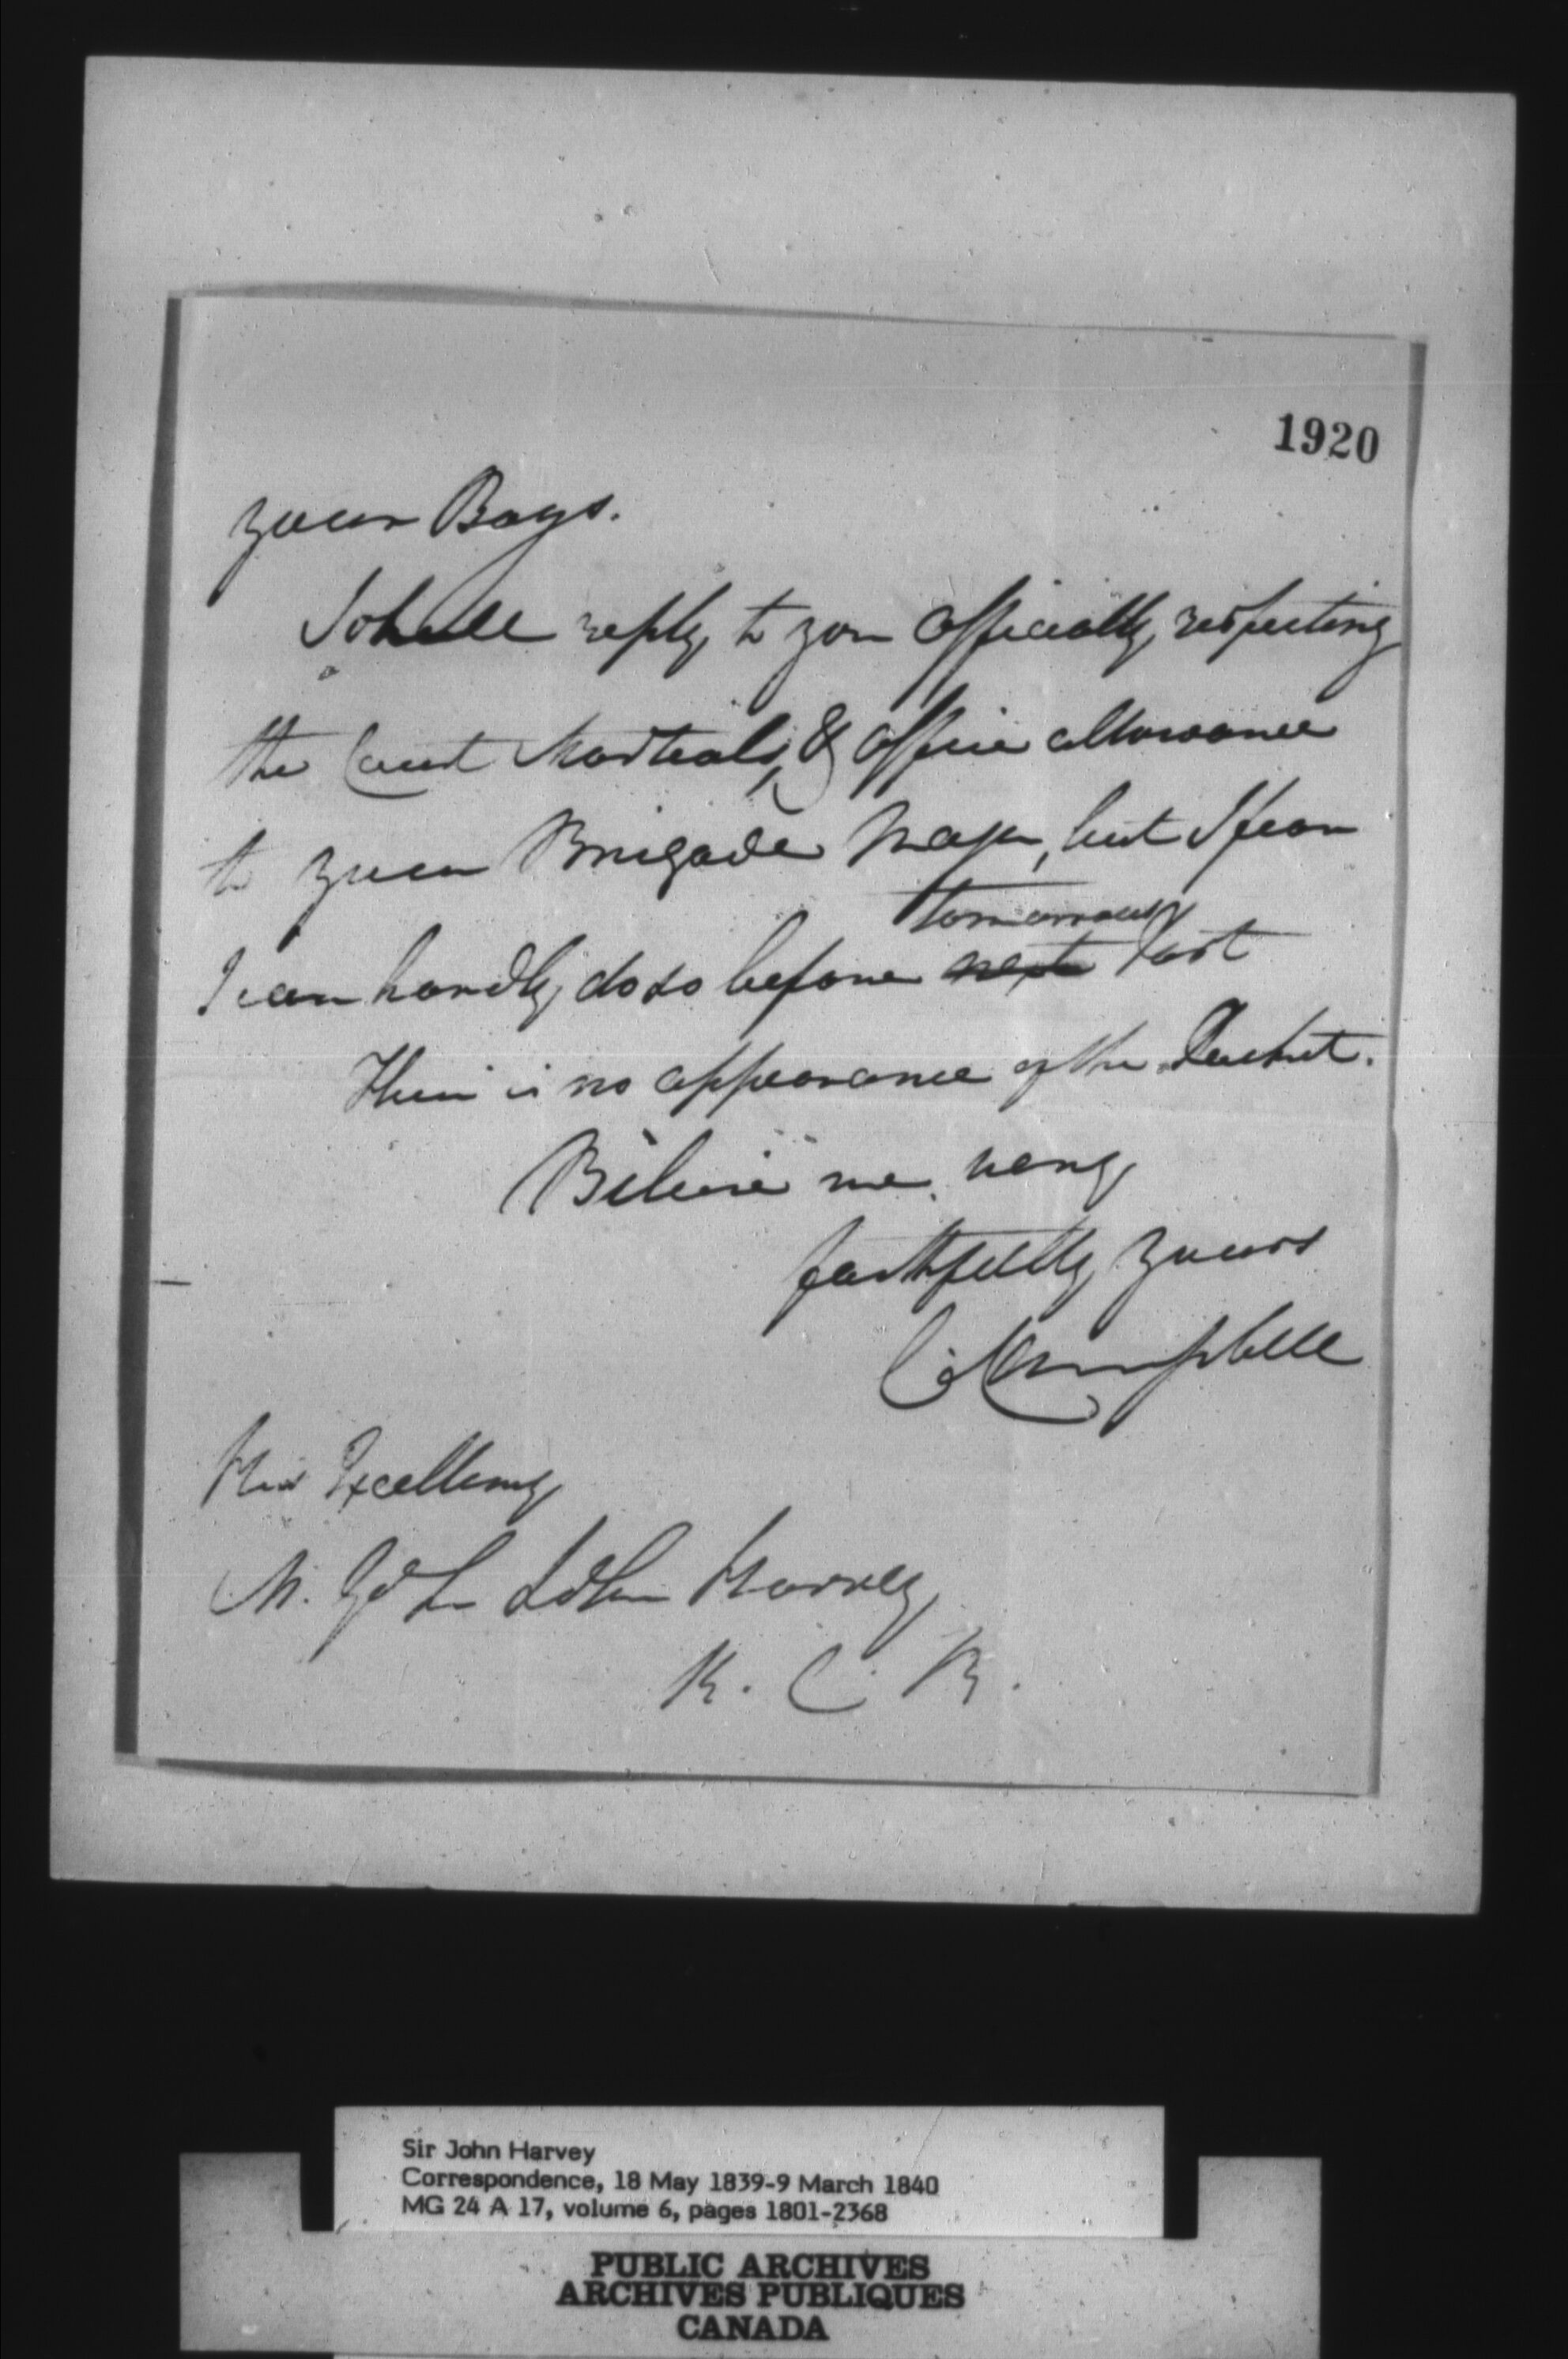 1920
your Boys.
I shall reply to you officially, respecting
the Court Martials, & office allowance
to your Brigade Major, but I fear
tomorrows
I can hardly do so before next Post
There is no appearance of the Packet.
Believe me, very
faithfully yours
C. Campbell
His Excellency
M. Gl Sir John Harvey
K. C. B.
Sir John Harvey
Correspondence, 18 May 1839-9 March 1840
MG 24 A 17, volume 6, pages 1801-2368
PUBLIC ARCHIVES
ARCHIVES PUBLIQUES
CANADA